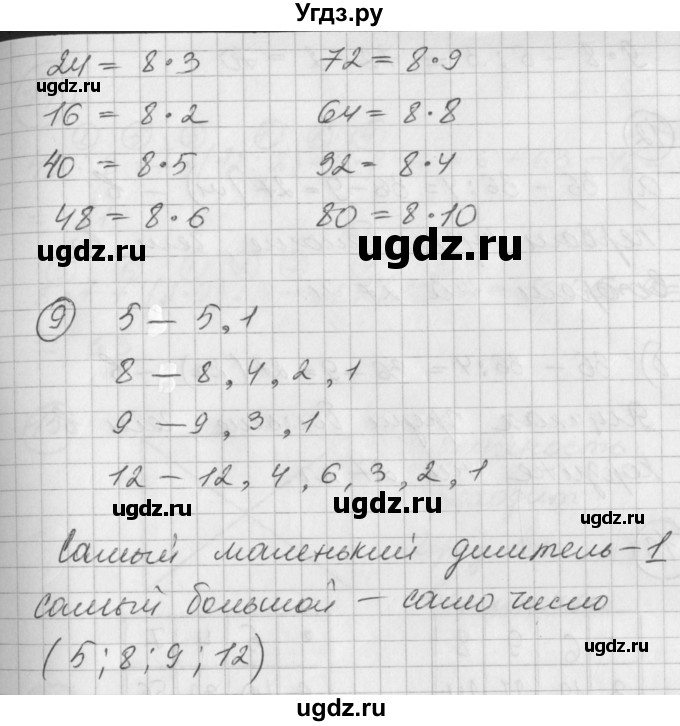 Угдз.ру
24 = 8·3 72 = 8·9
ugdz.ru
16 = 8·2 64 = 8·8
40 = 8·5 32 = 8·4
48 = 8·6 80 = 8·10
ugdz.ru ugdz.ru
9 5 — 5, 1
8 — 8, 4, 2, 1
9 — 9, 3, 1
12 — 12, 4, 6, 3, 2, 1
ugdz.ru ugdz.ru
Самый маленький делитель — 1
самый большой — само число
ugdz.ru
(5; 8; 9; 12)
ugdz.ru
ugdz.ru